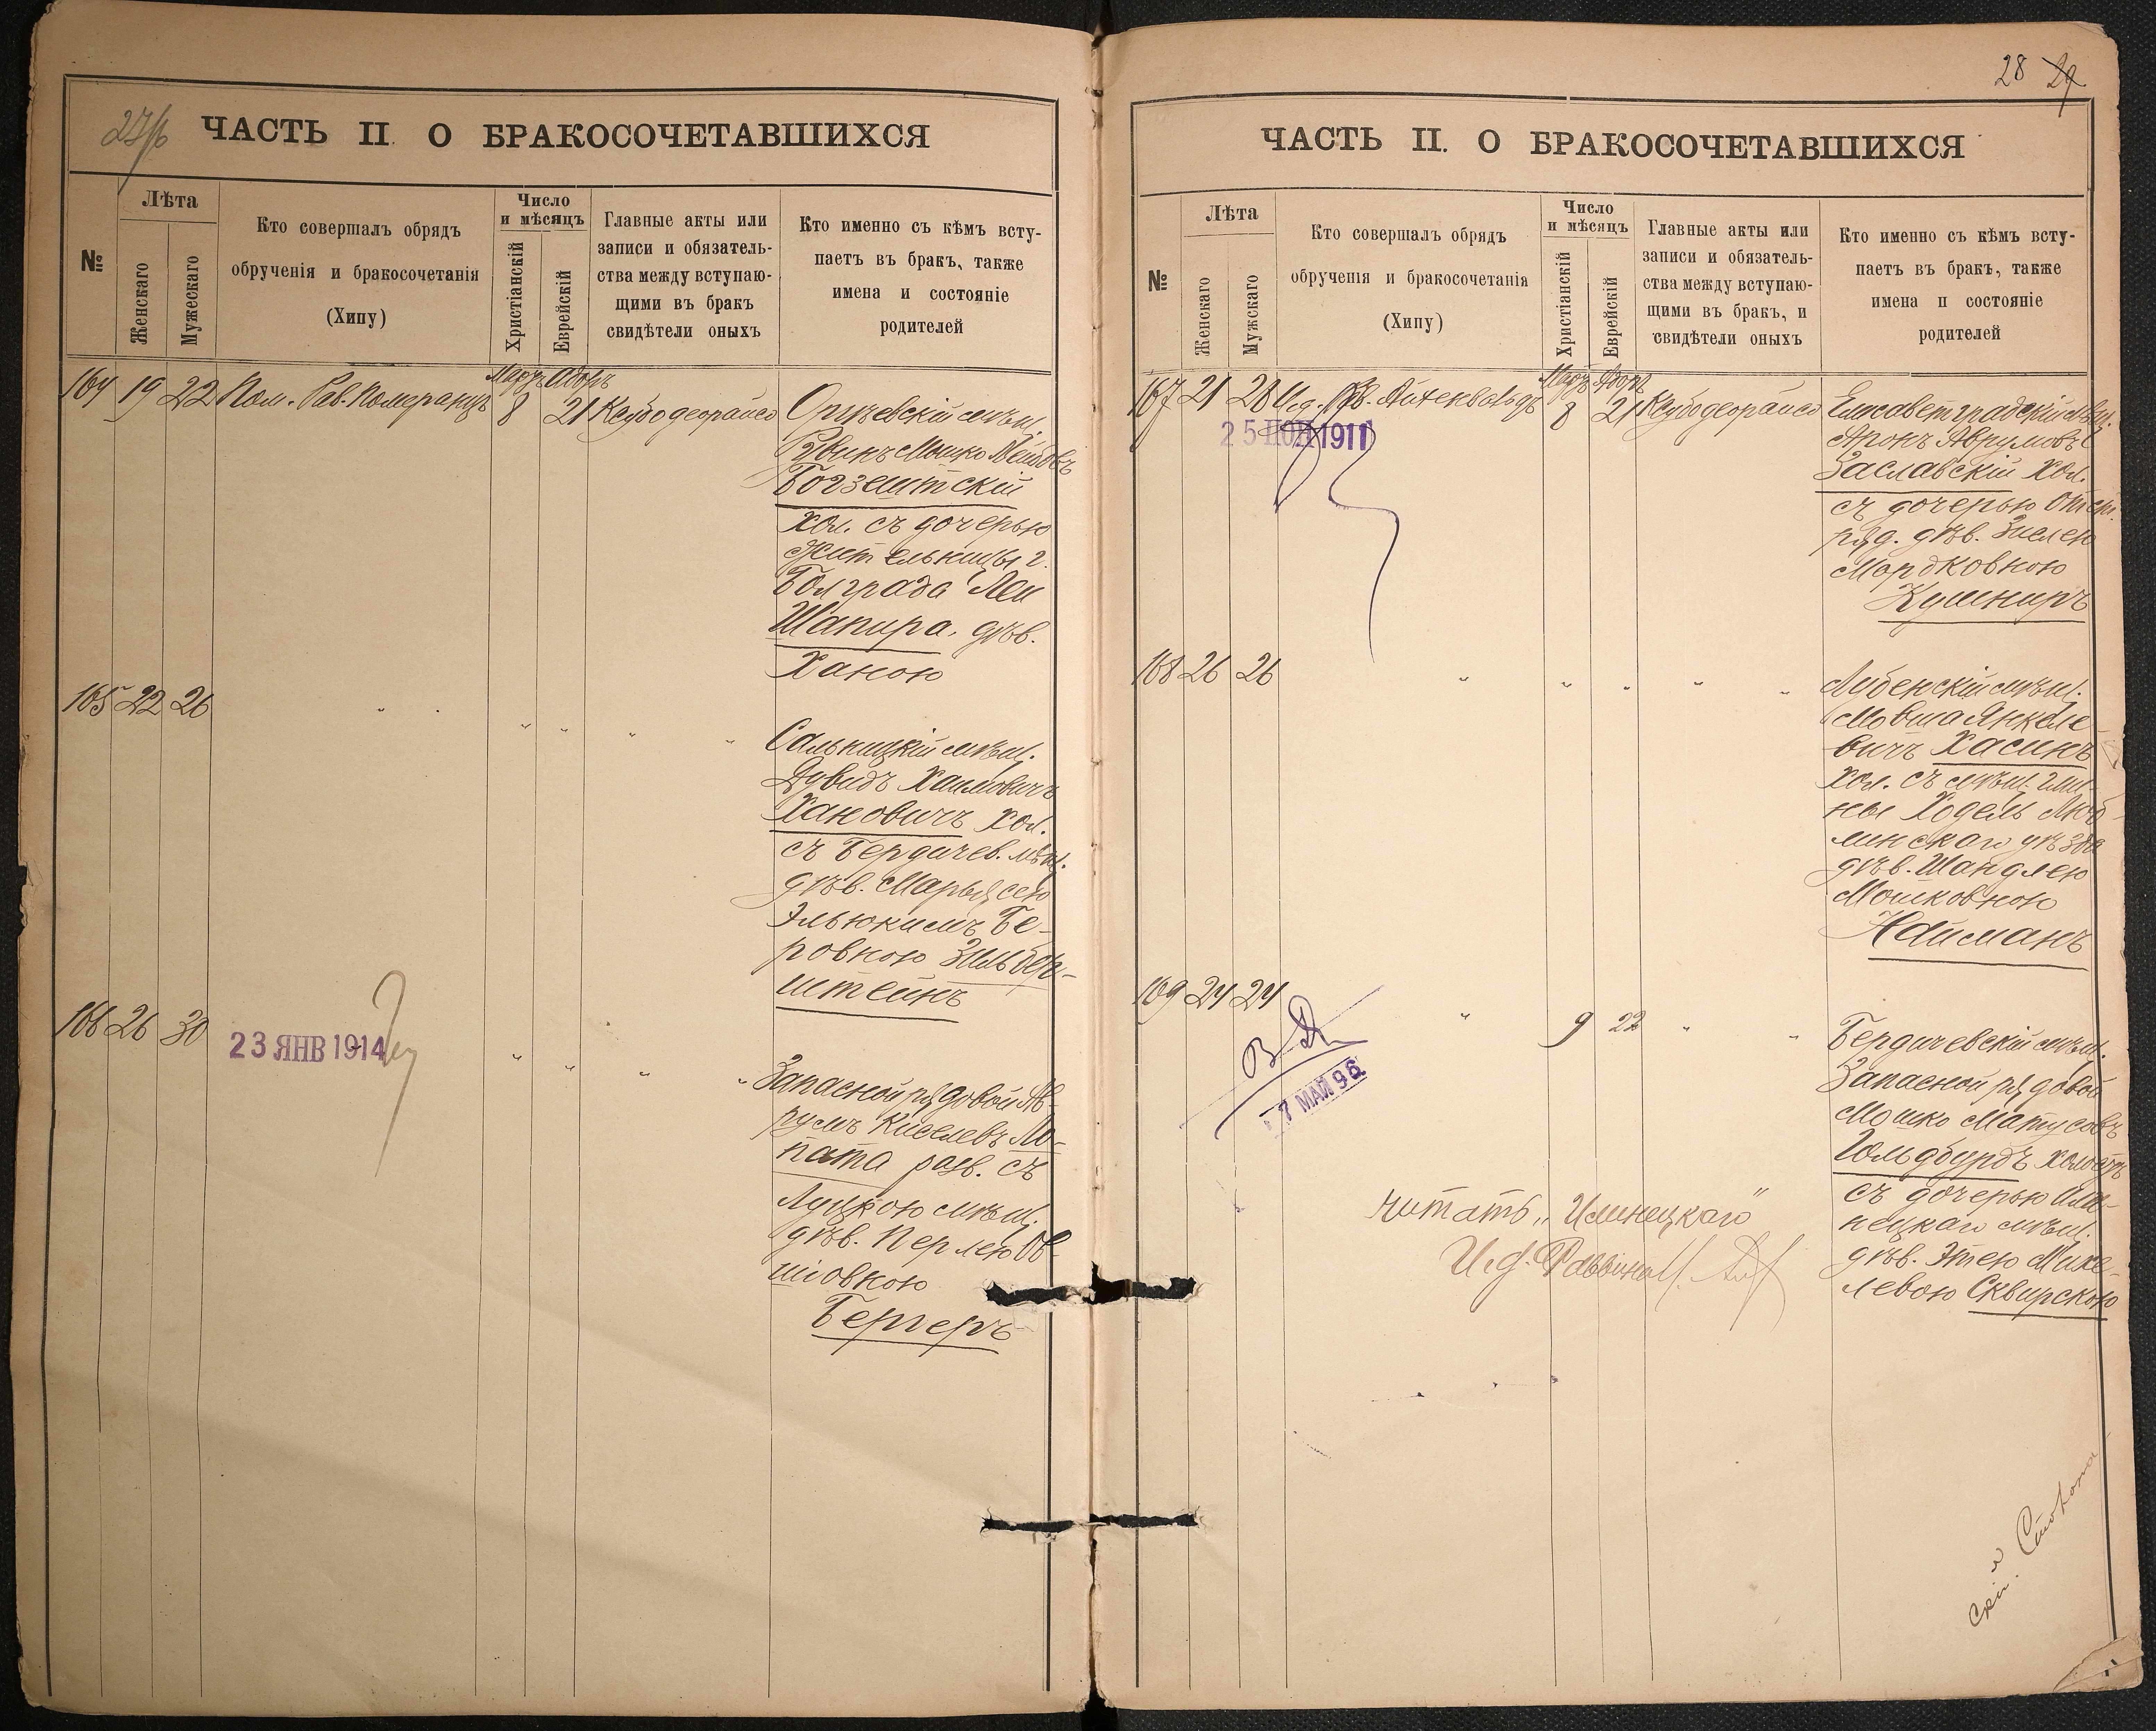 27/б ЧАСТЬ II. О БРАКОСОЧЕТАВШИХСЯ
№
Лѣта
Женскаго
Мужескаго
Кто совершалъ обрядъ
обрученія и бракосочетанія
(Хипу)
Число
и мѣсяцъ
Христіанскій
Еврейскій
Главные акты или
записи и обязатель-
ства между вступаю-
щими въ бракъ
свидѣтели оныхъ
Кто именно съ кѣмъ всту-
паетъ въ бракъ, также
имена и состояніе
родителей
164 19 22 Пом. Рав. Померанцъ
Мартъ Адоръ
8 21 Ксубо деорайсо
Оргѣевскій мѣщ.
Рувинъ Мошко Лейбовъ
Богзештскій
хол. съ дочерью
жительницы г.
Болграда Леи
Шапира, дѣв.
Ханою
165 22 26 " " " " " "
Сальницкій мѣщ.
Дувидъ Хаимовичъ
Хановичъ хол.
съ Бердичев. мѣщ.
дѣв. Марьясею
Эльюкимъ Бе-
ровною Зильбер-
штейнъ
166 26 30
23 ЯНВ 1914
" " " "
Запасной рядовой Ав-
румъ Киселевъ Ло-
пата разв. съ
Луцкою мѣщ.
дѣв. Перлею Ов-
шіовною
Бергеръ
28 29
ЧАСТЬ II. О БРАКОСОЧЕТАВШИХСЯ
№
Лѣта
Женскаго
Мужскаго
Кто совершалъ обрядъ
обрученія и бракосочетанія
(Хипу)
Число
и мѣсяцъ
Христіанскій
Еврейскій
Главные акты или
записи и обязатель-
ства между вступаю-
щими въ бракъ, и
свидѣтели оныхъ
Кто именно съ кѣмъ всту-
паетъ въ бракъ, также
имена и состояніе
родителей
167 21 28 И.д. Рав. Айхенвальдъ
Мартъ Адоръ
8 21 Ксубо деорайсо
25 1911
Елисаветградскій мѣщ.
Аронъ Аврумовъ
Заславскій хол.
съ дочерью
ряд. дѣв. Зислею
Мордковною
Кушниръ
168 26 26 " " " " "
Лубенскій мѣщ.
Мовша Янкеле-
вичъ Хасинъ
хол. съ мѣщ. гми-
ны Ходель Люб-
линскаго уѣзда
дѣв. Шандлею
Мошковною
Найманъ
169 24 24 " 9 22 " "
7 МАЙ 96
Бердичевскій мѣщ.
Запасной рядовой
Мошко Матусовъ
Гольдбурдъ холостъ
съ дочерью Или-
нецкаго мѣщ.
дѣв. Этею Михе-
левою Сквирскою
читать „Илинецкаго"
И.д. Раввина